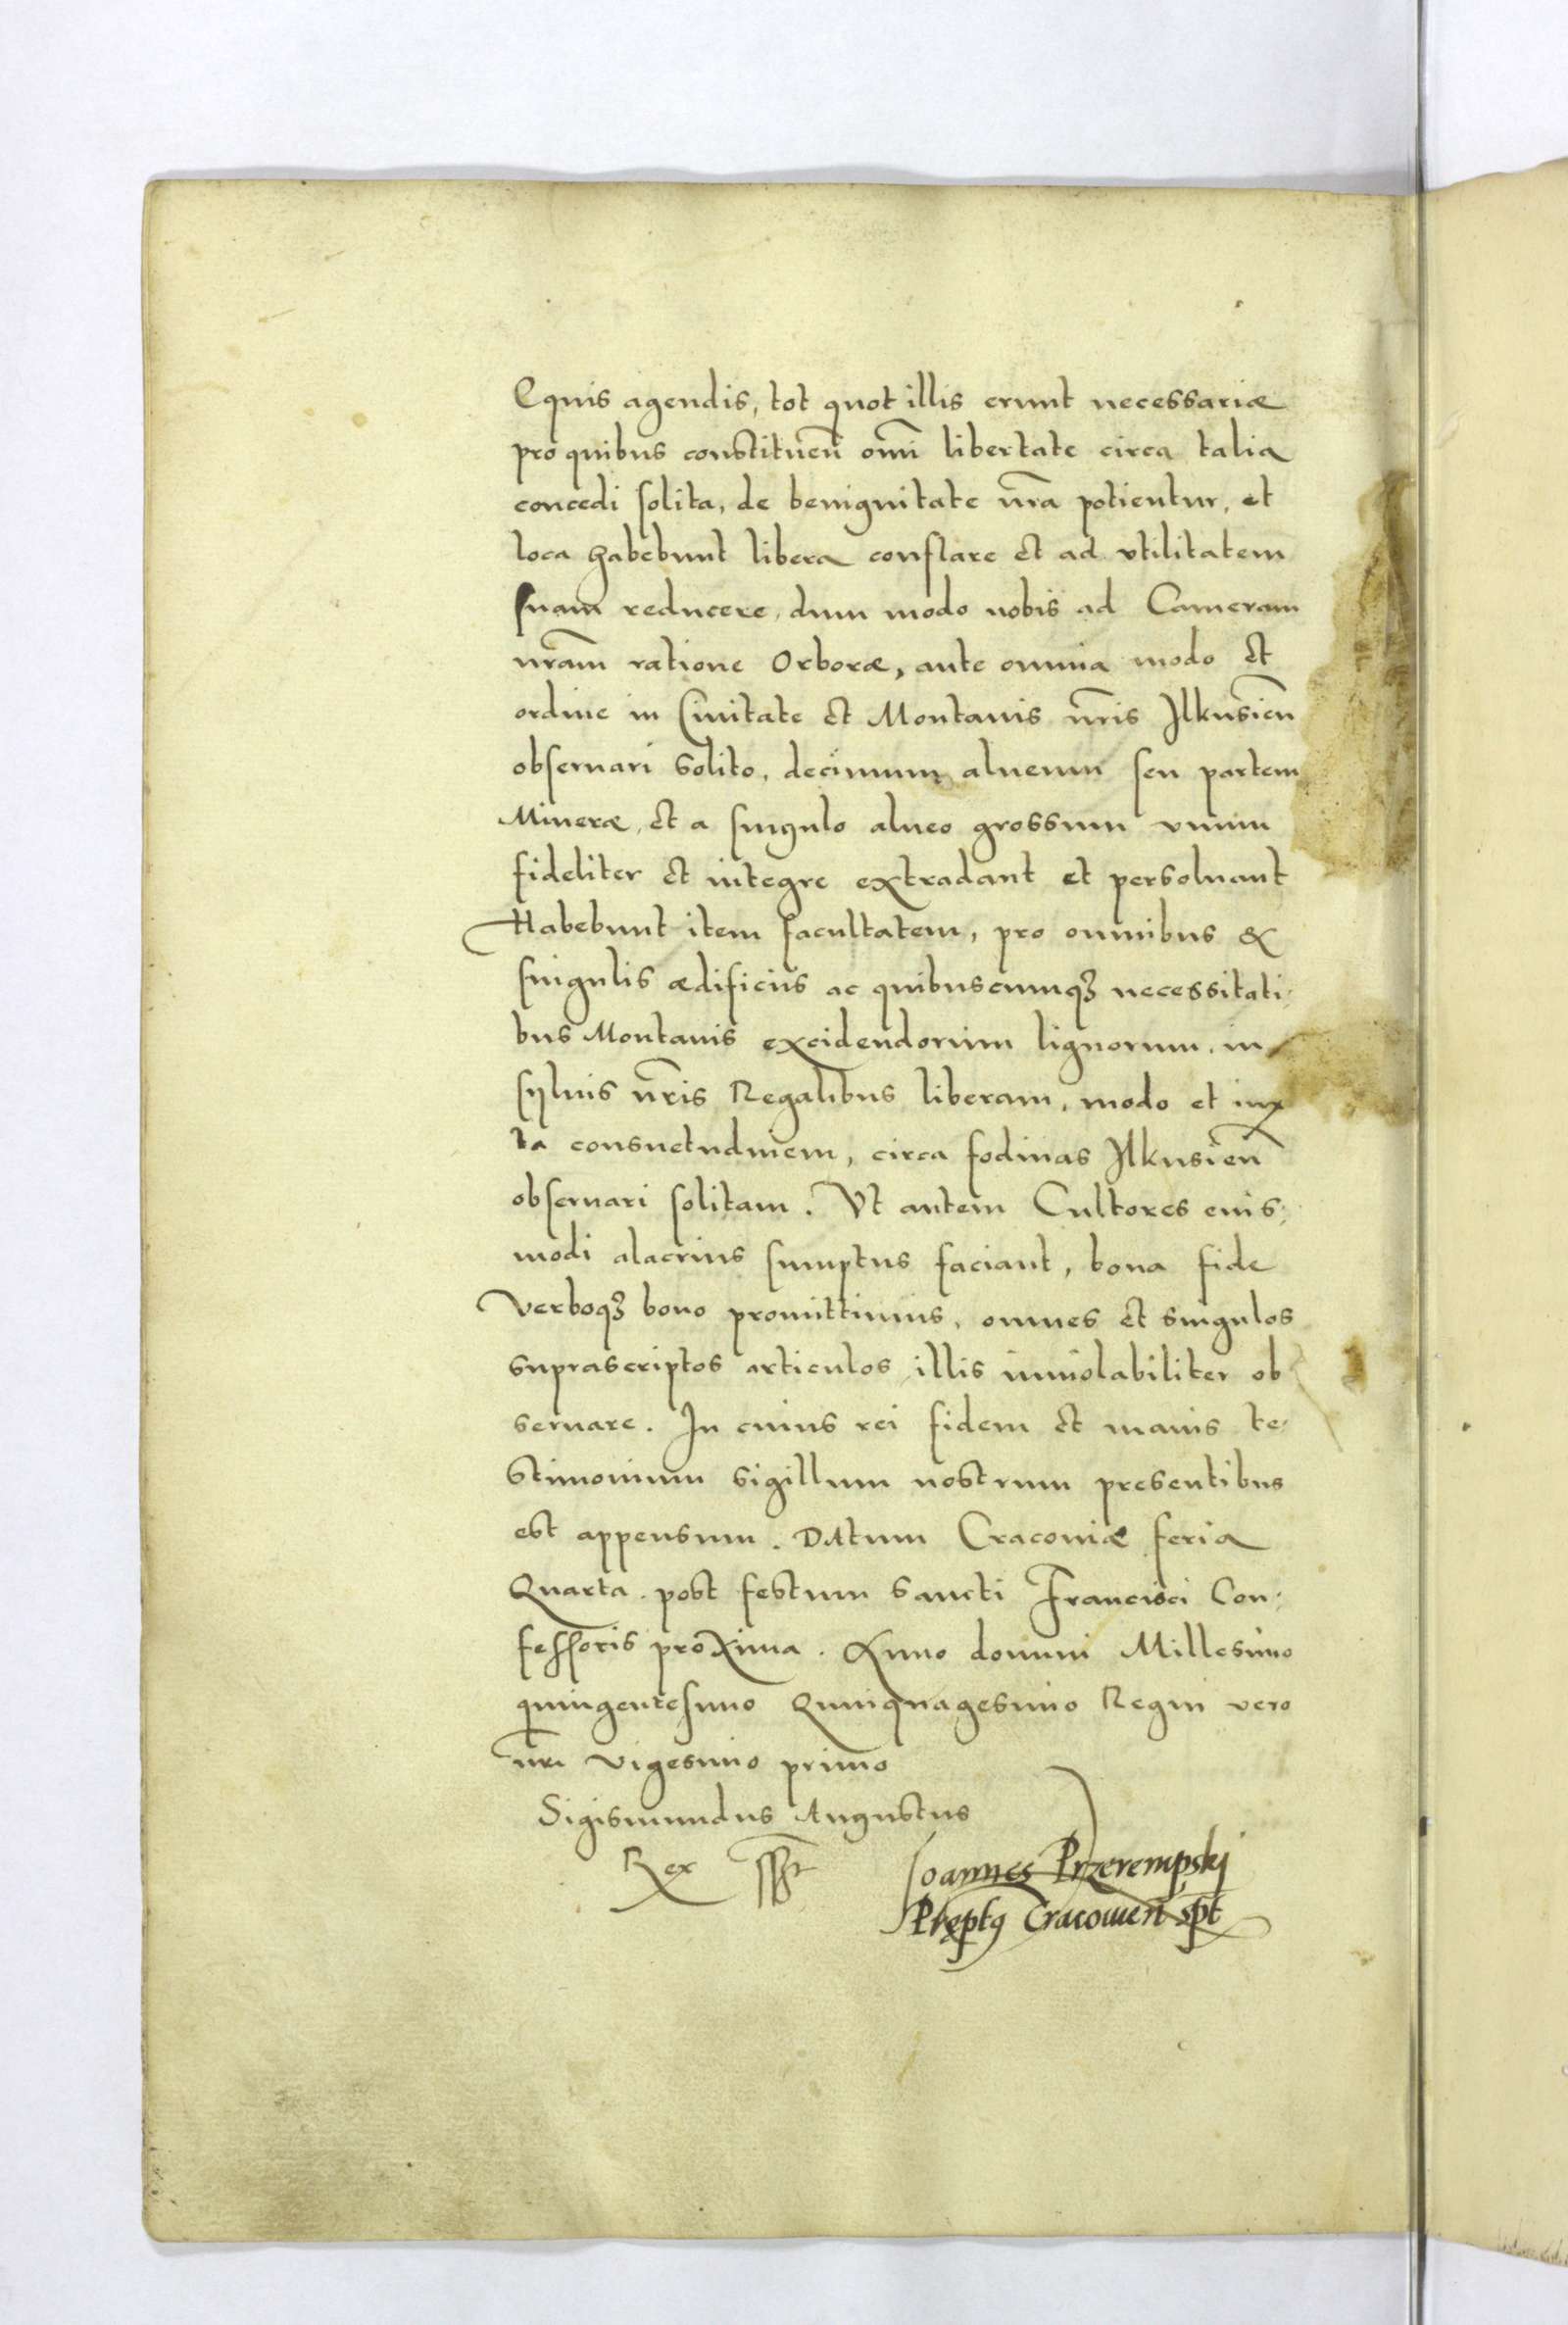 Equis agendis, tot quot illis erunt necessariæ
pro quibus constituen̄ om̄i libertate circa talia
concedi solita, de benignitate nr̄a potientur, et
loca habebunt libera conflare et ad vtilitatem
suam reducere, dum modo nobis ad Cameram
nr̄am ratione Orboræ, ante omnia modo et
ordine in Ciuitate et Montanis nr̄is Ilkusien̄
obseruari solito, decimum alueum seu partem
Mineræ, et a singulo alueo grossum vnum
fideliter et integre extradant et persoluant
Habebunt item facultatem, pro omnibus &
singulis ædificiis ac quibuscumqꝫ necessitati-
bus Montanis excidendorum lignorum, in
syluis nr̄is Regalibus liberam, modo et iux
ta consuetudinem, circa fodinas Ilkusien̄
obseruari solitam. Vt autem Cultores eius-
modi alacrius sumptus faciant, bona fide
Verboqꝫ bono promittimus, omnes et singulos
suprascriptos articulos illis inuiolabiliter ob
seruare. In cuius rei fidem et maius te-
stimonium sigillum nostrum presentibus
est appensum. DAtum Cracoviæ feria
Quarta post festum Sancti Francisci Con-
fessoris proxima. Anno domini Millesimo
quingentesimo Quinquagesimo Regni vero
nr̄i vigesimo primo
Sigismundus Augustus
Rex sst
Joannes Przerempskj
Prępt9 Cracouien̄ spt